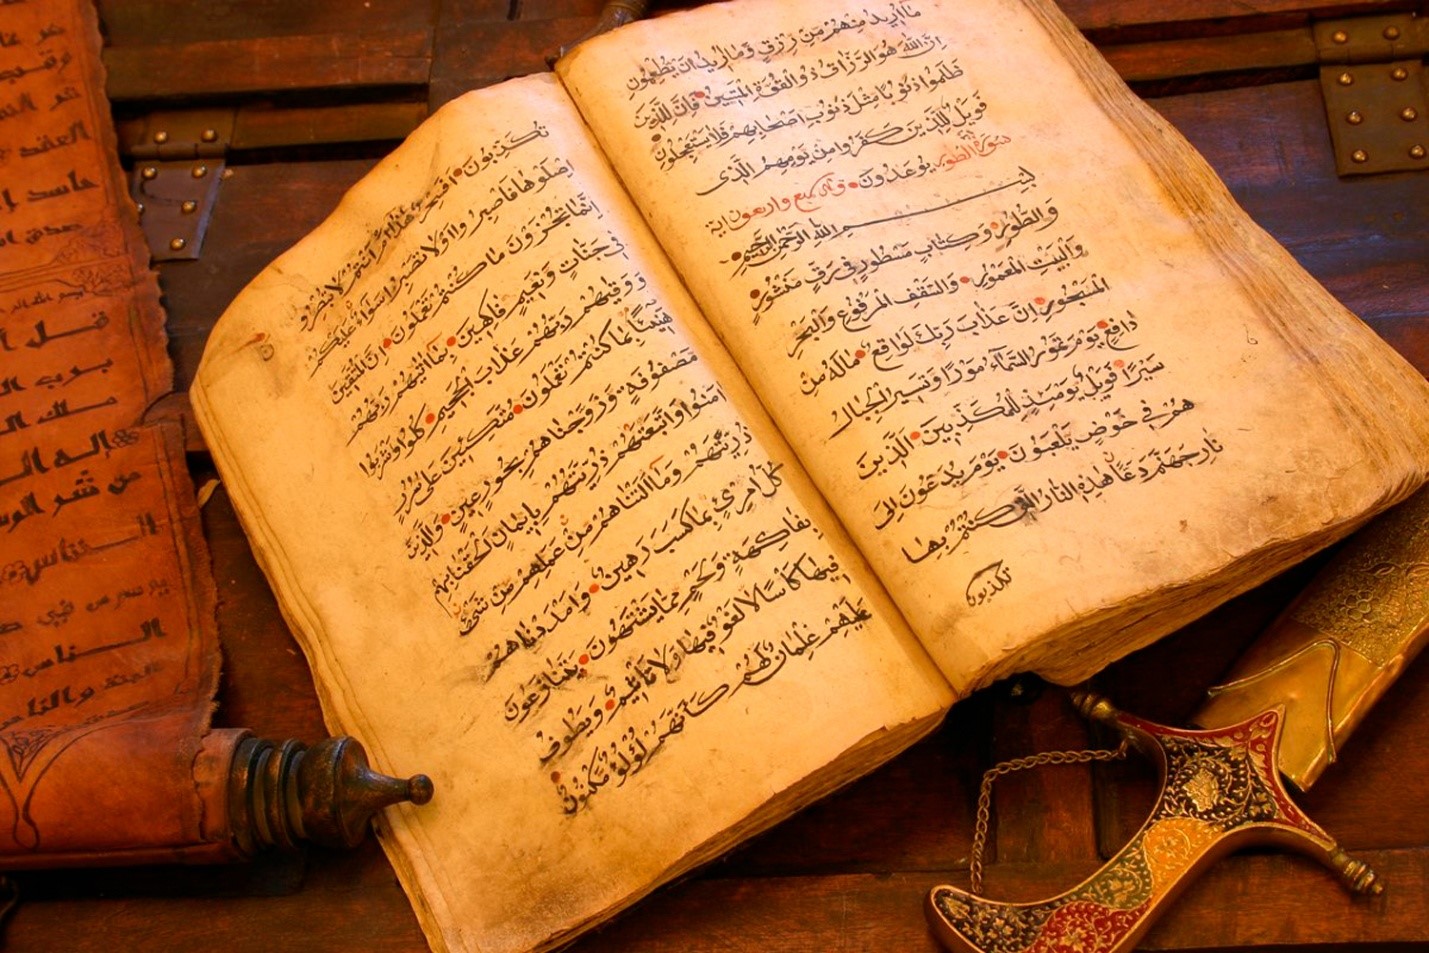 ما أريد منهم من رزق وما أريد ان يطعمون
ان الله هو الرزاق ذو القوة المتين فإن للذين
ظلموا ذنوبا مثل ذنوب اصحابهم فلا يستعجلون
فويل للذين كفروا من يومهم الذي
يوعدون سورة الطور
واربعون اية
بسم الله الرحمن الرحيم
والطور وكتاب مسطور في رق منشور
والبيت المعمور والسقف المرفوع والبحر
المسجور ان عذاب ربك لواقع ماله من
دافع يوم تمور السماء مورا وتسير الجبال
سيرا فويل يومئذ للمكذبين الذين
هم في خوض يلعبون يوم يدعون الى
نار جهنم دعا هذه النار التي كنتم بها
تكذبون
تكذبون افسحر هذا ام انتم لا تبصرون
اصلوها فاصبروا او لا تصبروا سواء عليكم
انما تجزون ما كنتم تعملون ان المتقين
في جنات ونعيم فاكهين بما اتيهم ربهم
ووقيهم ربهم عذاب الجحيم كلوا واشربوا
هنيئا بما كنتم تعملون متكئين على سرر
مصفوفة وزوجناهم بحور عين والذين
امنوا واتبعتهم ذريتهم بايمان الحقنا بهم
ذريتهم وما التناهم من عملهم من شيء
كل امرئ بما كسب رهين وامددناهم
بفاكهة ولحم مما يشتهون يتنازعون
فيها كأسا لا لغو فيها ولا تأثيم ويطوف
عليهم غلمان لهم كأنهم لؤلؤ مكنون
العقد
حاسد
قل
برب
ملك
إله
من شر
الخناس
في
الناس